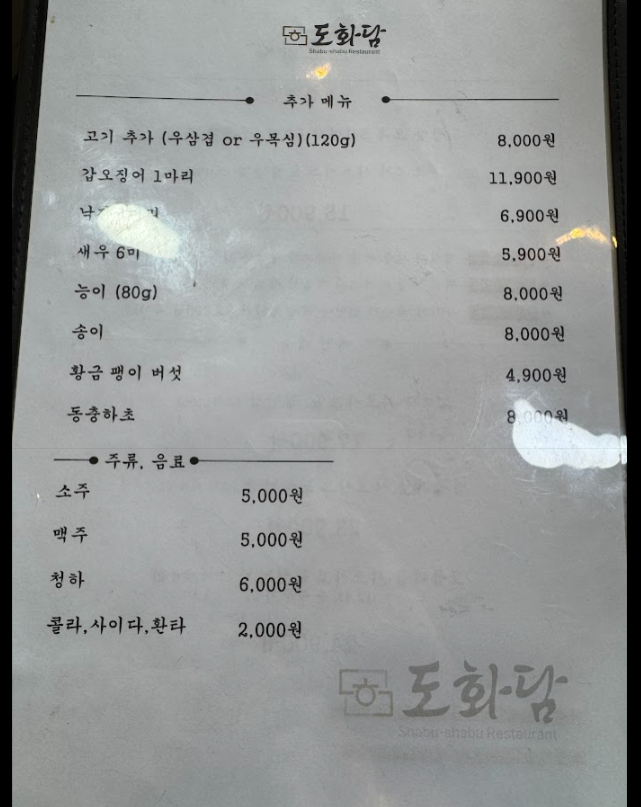 도화담
Shabu-shabu Restaurant
추가 메뉴
고기 추가 (우삼겹 or 우목심)(120g) 8,000원
갑오징어 1마리 11,900원
6,900원
새우 6미 5,900원
능이 (80g) 8,000원
송이 8,000원
황금 팽이 버섯 4,900원
동충하초 8,000원
주류, 음료
소주 5,000원
맥주 5,000원
청하 6,000원
콜라,사이다,환타 2,000원
도화담
Shabu-shabu Restaurant